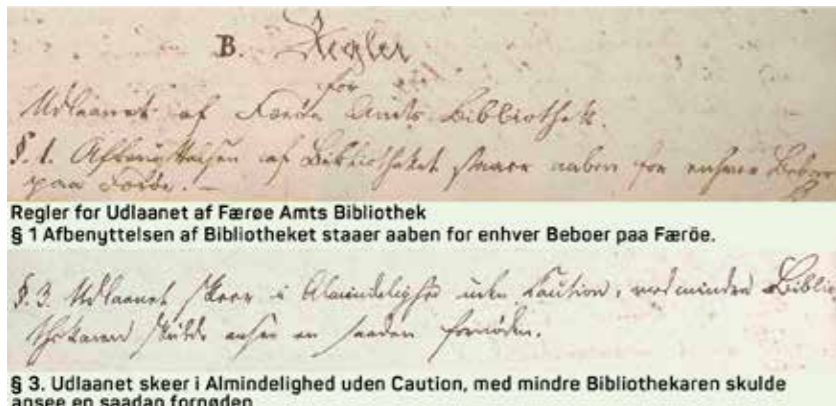 B. Regler
for
Udlaanet af Færöe Amts Bibliothek.
§. 1. Afbenyttelsen af Bibliotheket staaer aaben for enhver Beboer
paa Færöe. —
Regler for Udlaanet af Færøe Amts Bibliothek
§ 1 Afbenyttelsen af Bibliotheket staaer aaben for enhver Beboer paa Færöe.
§. 3. Udlaanet skeer i Almindelighed uden Caution, med mindre Biblio
thekaren skulde ansee en saadan fornøden.
§ 3. Udlaanet skeer i Almindelighed uden Caution, med mindre Bibliothekaren skulde
ansee en saadan fornøden